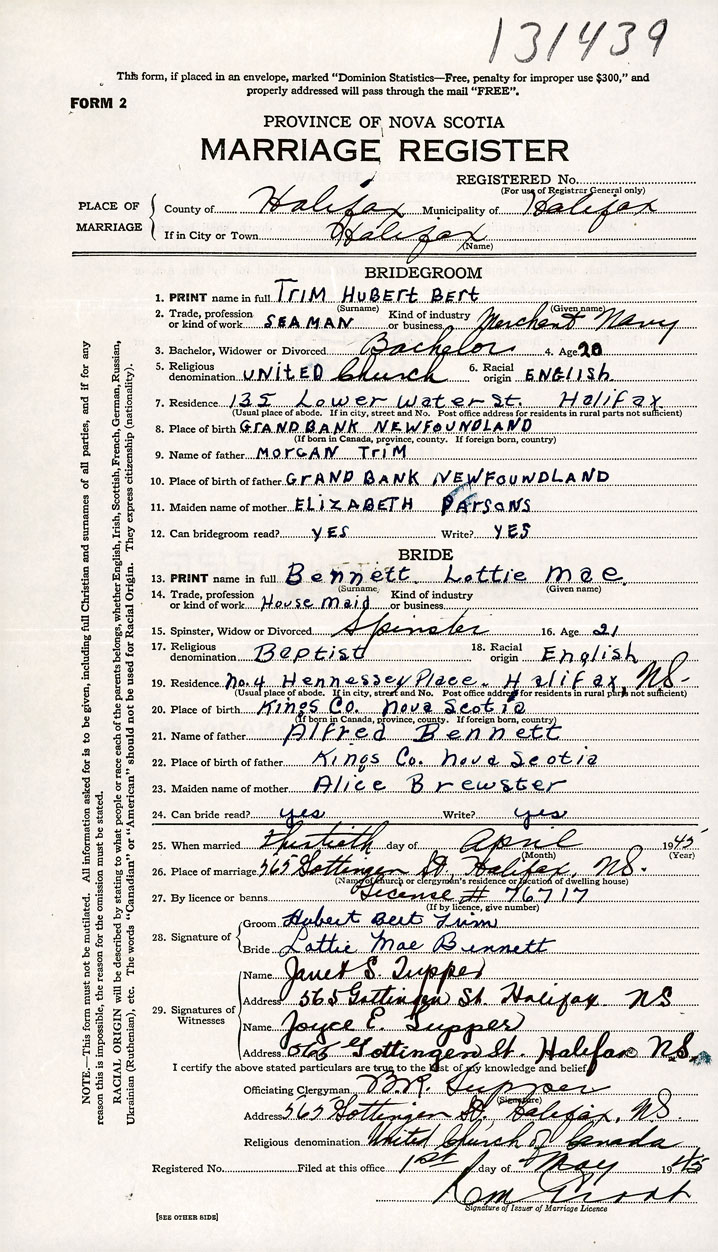 131439
This form, if placed in an envelope, marked "Dominion Statistics—Free, penalty for improper use $300," and
properly addressed will pass through the mail "FREE".
FORM 2
PROVINCE OF NOVA SCOTIA
MARRIAGE REGISTER
REGISTERED No.
(For use of Registrar General only)
PLACE OF MARRIAGE
County of Halifax Municipality of Halifax
If in City or Town Halifax
(Name)
BRIDEGROOM
1. PRINT name in full TRIM HUBERT BERT
(Surname) (Given name)
2. Trade, profession or kind of work SEAMAN Kind of industry or business Merchant Navy
3. Bachelor, Widower or Divorced Bachelor 4. Age 20
5. Religious denomination UNITED Church 6. Racial origin ENGLISH
7. Residence 135 Lower Water St. Halifax
(Usual place of abode. If in city, street and No. Post office address for residents in rural parts not sufficient)
8. Place of birth GRANDBANK NEWFOUNDLAND
(If born in Canada, province, county. If foreign born, country)
9. Name of father MORGAN TRIM
10. Place of birth of father GRAND BANK NEWFOUNDLAND
11. Maiden name of mother ELIZABETH PARSONS
12. Can bridegroom read? YES Write? YES
BRIDE
13. PRINT name in full Bennett Lottie Mae
(Surname) (Given name)
14. Trade, profession or kind of work House maid Kind of industry or business
15. Spinster, Widow or Divorced Spinster 16. Age 21
17. Religious denomination Baptist 18. Racial origin English
19. Residence No. 4 Hennessey Place. Halifax, NS-
(Usual place of abode. If in city, street and No. Post office address for residents in rural parts not sufficient)
20. Place of birth Kings Co. Nova Scotia
(If born in Canada, province, county. If foreign born, country)
21. Name of father Alfred Bennett
22. Place of birth of father Kings Co. Nova Scotia
23. Maiden name of mother Alice Brewster
24. Can bride read? yes Write? yes
25. When married Thirtieth day of April 1945
(Month) (Year)
26. Place of marriage 565 Gottingen St, Halifax, NS.
(Name of church or clergyman's residence or location of dwelling house)
27. By licence or banns License # 76717
(If by licence, give number)
28. Signature of
Groom Hubert Bert Trim
Bride Lottie Mae Bennett
29. Signatures of Witnesses
Name Janet S. Tupper
Address 565 Gottingen St. Halifax NS
Name Joyce E. Tupper
Address 565 Gottingen St. Halifax NS.
I certify the above stated particulars are true to the best of my knowledge and belief.
Officiating Clergyman Tupper
(Signature)
Address 565 Gottingen St, Halifax, NS.
Religious denomination United Church of Canada
Registered No. Filed at this office 1st day of May 1945
Signature of Issuer of Marriage Licence
[SEE OTHER SIDE]
NOTE.—This form must not be mutilated. All information asked for is to be given, including full Christian and surnames of all parties, and if for any
reason this is impossible, the reason for the omission must be stated.
RACIAL ORIGIN will be described by stating to what people or race each of the parents belongs, whether English, Irish, Scottish, French, German, Russian,
Ukrainian (Ruthenian), etc. The words "Canadian" or "American" should not be used for Racial Origin. They express citizenship (nationality).